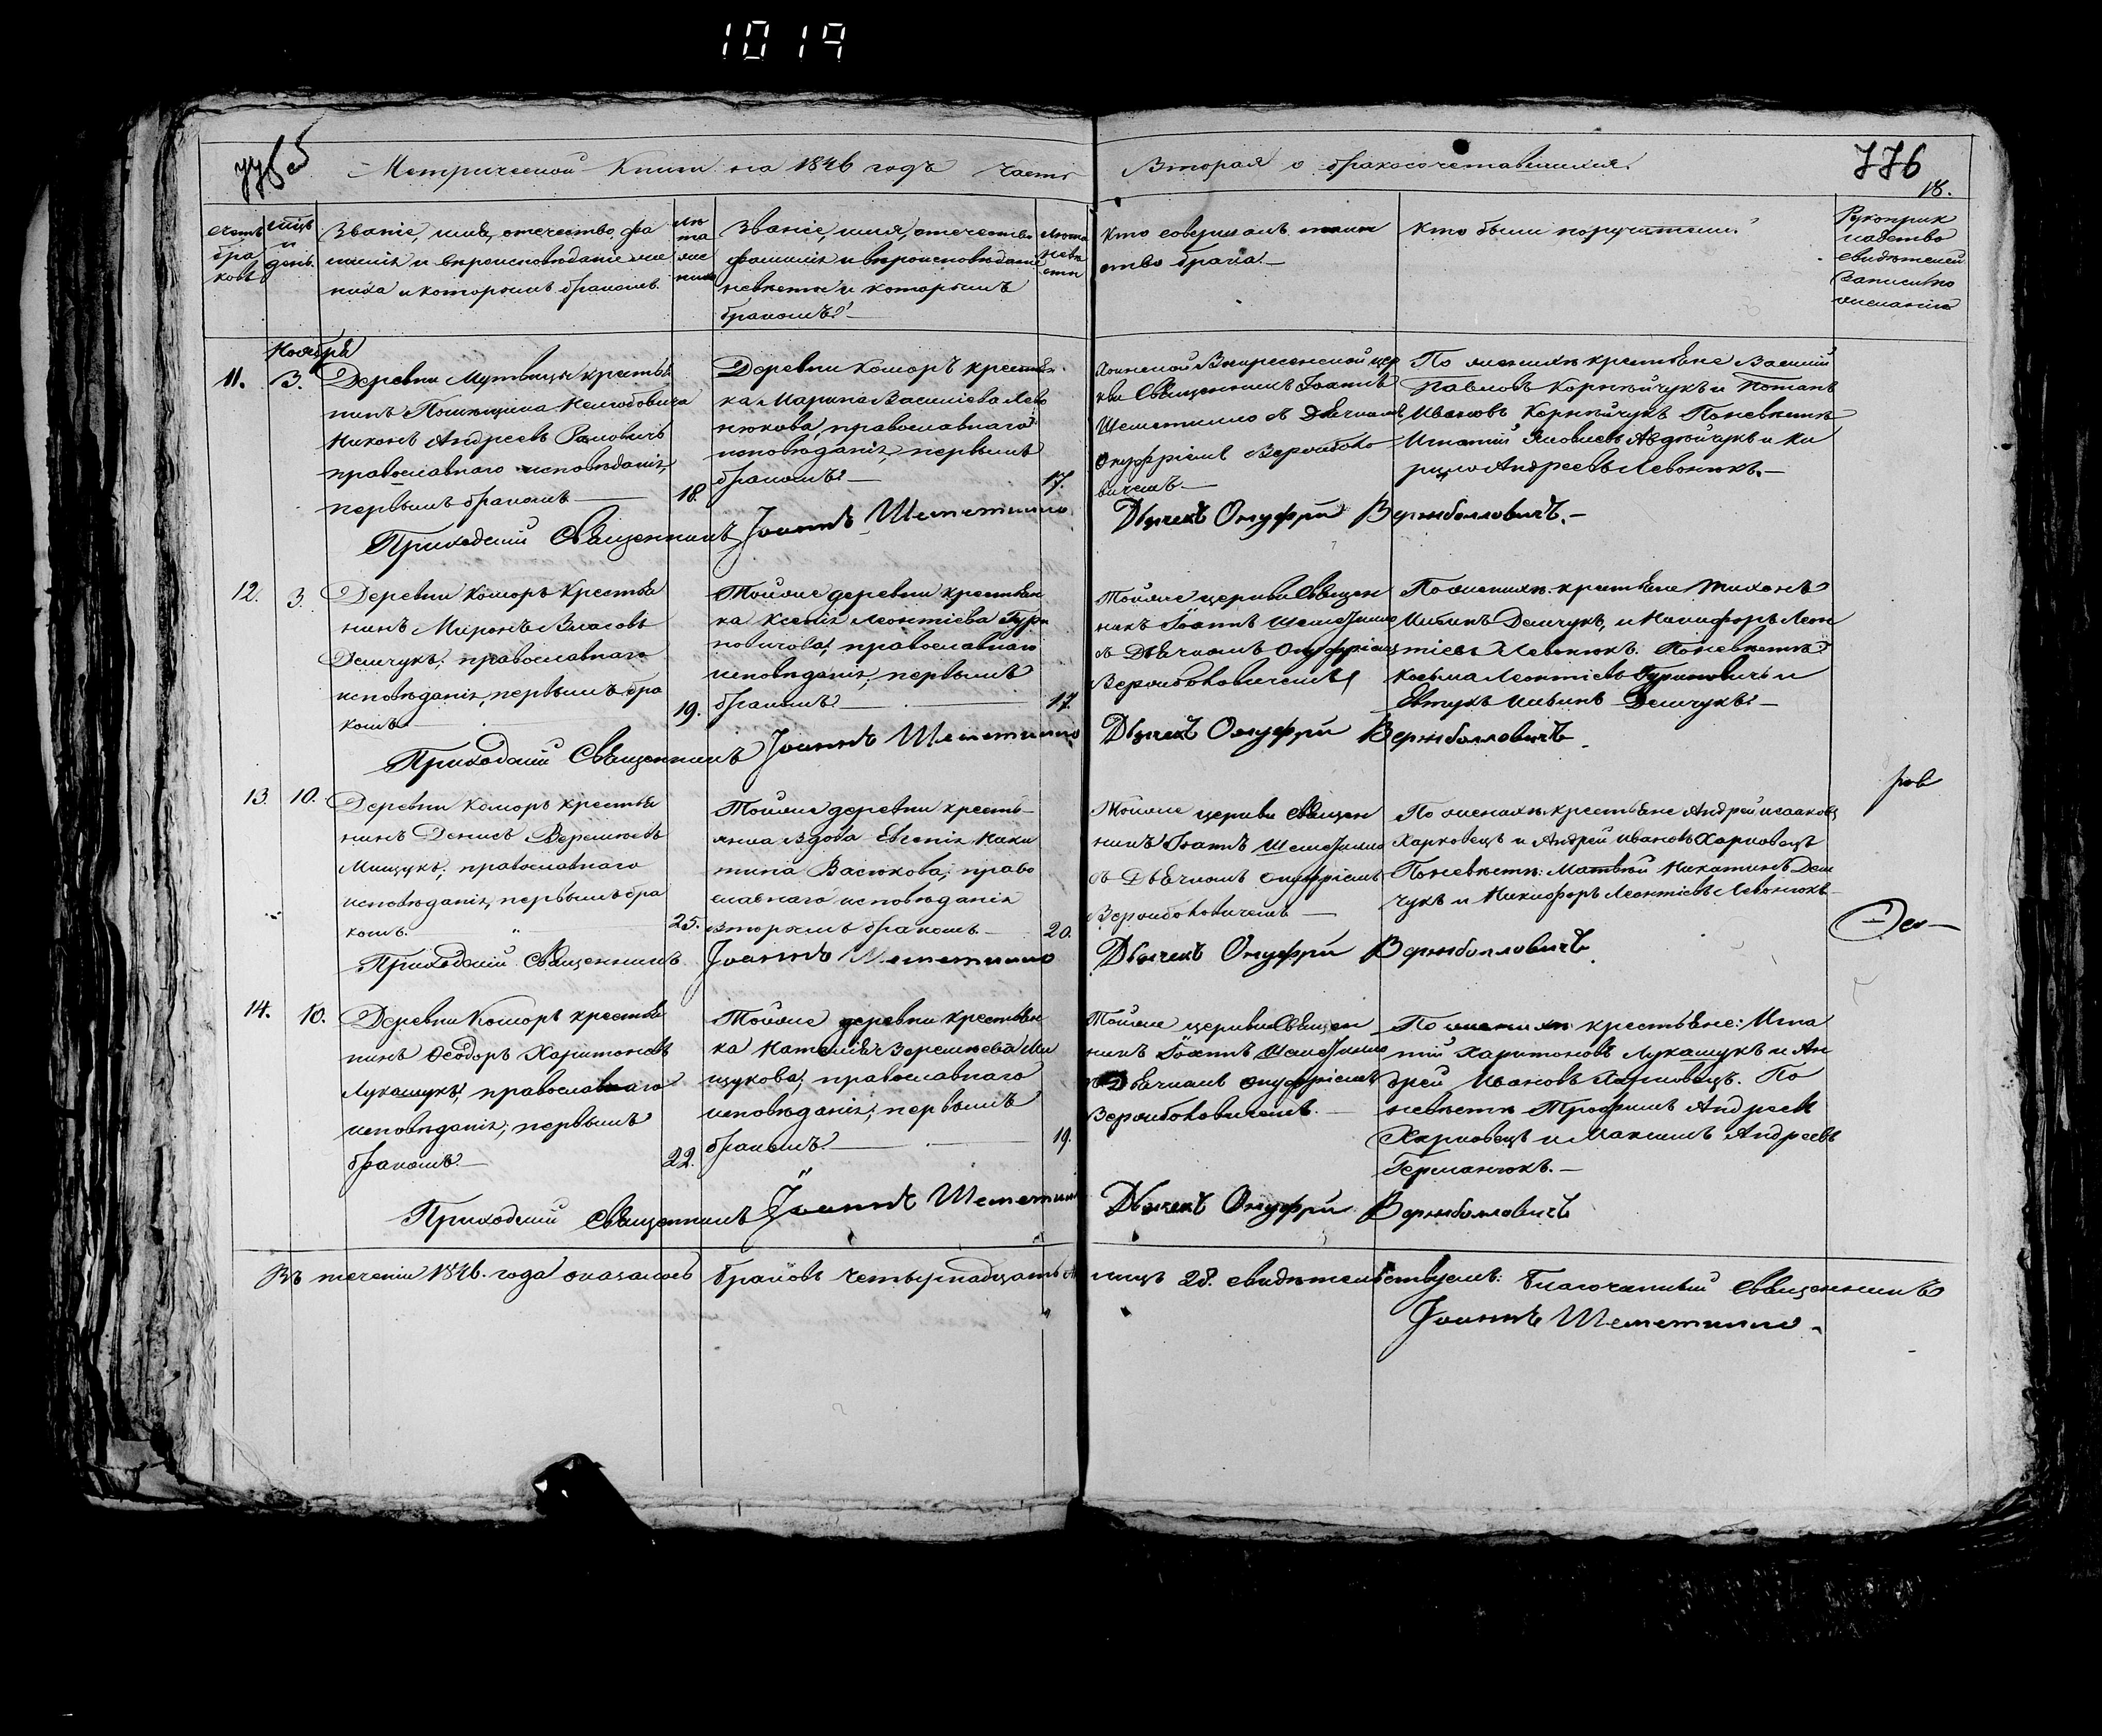 1019
Метрической Книги на 1846 годъ часть
Вторая о бракосочетавшихся.
776
18.
Счетъ бра ковъ
мцъ и день.
Званіе, имя, отечество, фа
милія и вѣроисповѣданіе же
ниха и которымъ бракомъ.
лѣ та же ниха
Званіе, имя, отечество
фамилія и вѣроисповѣданіе
невѣсты и которымъ
бракомъ.
лѣта невѣ сты
Кто совершалъ таин
ство брака.
Кто были поручители.
Рукоприк
ладство
свидѣтелей
записи по
желанію
Ноября
11. 3.
Деревни Мутвицы крестья
нинъ Помѣщика
Никонъ Андреевъ
православнаго исповѣданія,
первымъ бракомъ
18.
Деревни Коморъ крестьян
ка Марина Василіева Лево
нюкова, православнаго
исповѣданія, первымъ
бракомъ.
17.
Воскресенской цер
кви Священникъ Іоаннъ
Шеметилло съ Дьячкомъ
Онуфріемъ
вичемъ.
По женихѣ крестьяне Василій
Павловъ Корнѣйчукъ и Потапъ
Ивановъ Корнѣйчукъ По невѣстѣ
Игнатій Авдѣйчукъ и Ки
рило Андреевъ Левонюкъ.
Приходскій Священникъ Іоаннъ Шеметилло
Дьячекъ Онуфри
12. 3.
Деревни Коморъ Крестья
нинъ Миронъ Власовъ
Демчукъ, православнаго
исповѣданія, первымъ бра
комъ.
19.
Тойже деревни крестьян
ка Ксенія Леонтіева Гури
новичова, православнаго
исповѣданія, первымъ
бракомъ.
17.
Тойже церкви Священ
никъ Іоаннъ Шеметилло
съ Дьячкомъ Онуфріемъ
По женихѣ: крестьяне Тихонъ
Ильинъ Демчукъ, и Никифоръ Леон
тіевъ Левонюкъ. По невѣстѣ
Косьма Леонтіевъ Гуриновичъ и
Евтухъ Ильинъ Демчукъ.
Приходскій Священникъ Іоаннъ Шеметилло
Дьячекъ Онуфри
13. 10.
Деревни Коморъ крестья
нинъ Денисъ
Мищукъ, православнаго
исповѣданія, первымъ бра
комъ.
25.
Тойже деревни кресть-
янка вдова Евгенія Ники
тина Васюкова, право
славнаго исповѣданія
вторымъ бракомъ.
20.
Тойже церкви Священ
никъ Іоаннъ Шеметилло
съ Дьячкомъ Онуфріемъ
По женихѣ: крестьяне Андрей Исааковъ
Харковецъ и Андрей Ивановъ Харковецъ
По невѣстѣ: Матвѣй Никитинъ Дем
чукъ и Никифоръ Леонтіевъ Левонюкъ
Приходскій Священникъ Іоаннъ Шеметилло
Дьячекъ Онуфри
14. 10.
Деревни Коморъ крестья
нинъ Ѳеодоръ Харитоновъ
Лукашукъ, православнаго
исповѣданія, первымъ
бракомъ.
22.
Тойже деревни крестьян
ка Наталія Ми
щукова, православнаго
исповѣданія, первымъ
бракомъ.
19.
Тойже церкви Священ
никъ Іоаннъ Шеметилло
съ Дьячкомъ Онуфріемъ
По женихѣ крестьяне: Игна
тій Харитоновъ Лукашукъ и Ан
дрей Ивановъ Харковецъ. По
невѣстѣ Трофимъ Андреевъ
Харковецъ и Максимъ Андреевъ
Германюкъ.
Приходскій Священникъ Іоаннъ Шеметилло
Дьячекъ Онуфри
Въ теченіи 1846. года оказалось браковъ четырнадцать а лицъ 28. свидѣтельствуемъ: Благочинный Священникъ
Іоаннъ Шеметилло